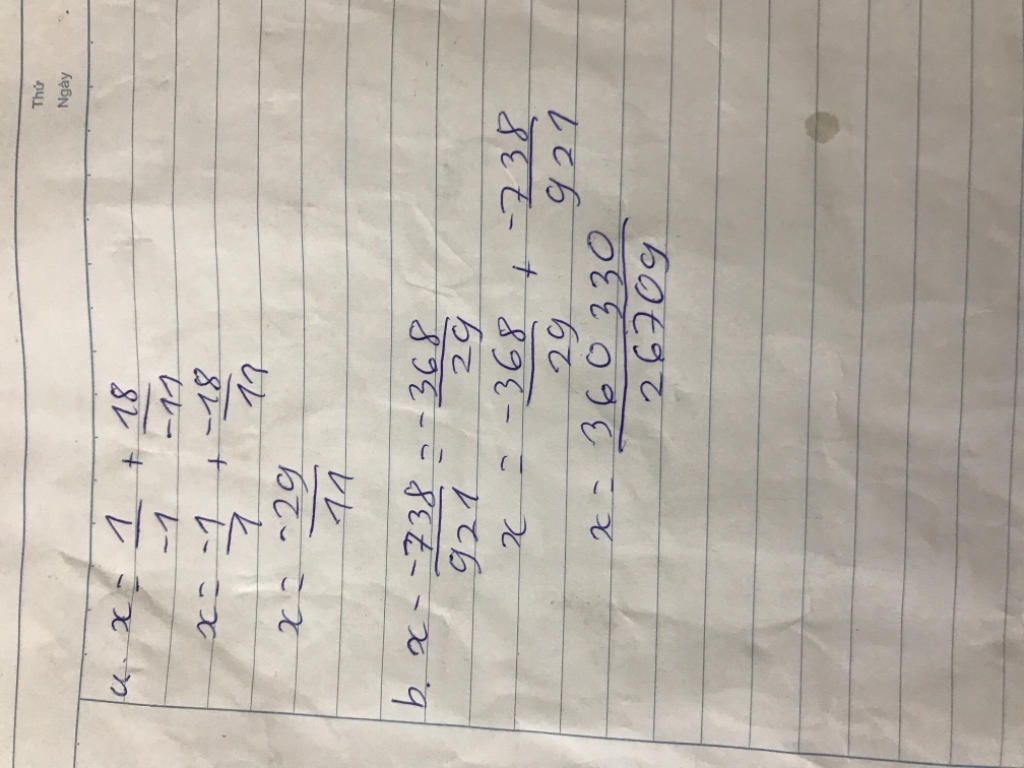 Thứ
Ngày
a. x = 1/-1 + 18/-11
x = -1/1 + -18/11
x = -29/11
b. x - -738/921 = -368/29
x = -368/29 + -738/921
x = 360 330/26709